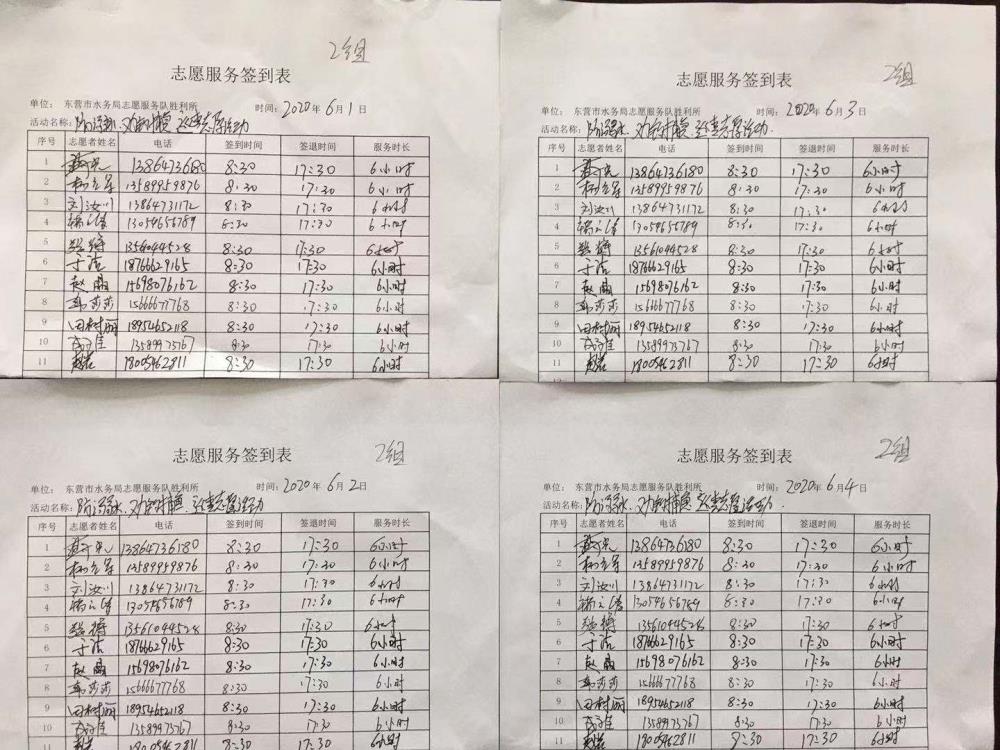 2组
志愿服务签到表
单位： 东营市水务局志愿服务队胜利所 时间：2020年6月1日
活动名称：防溺水、 巡查志愿活动
序号 志愿者姓名 电话 签到时间 签退时间 服务时长
1 13864736180 8:30 17:30 6小时
2 13589959876 8:30 17:30 6小时
3 刘汝川 13864731172 8:30 17:30 6小时
4 13054656789 8:30 17:30 6小时
5 13561044528 8:30 17:30 6小时
6 于洁 18766629165 8:30 17:30 6小时
7 赵晶 15698076162 8:30 17:30 6小时
8 韩莎莎 15666677768 8:30 17:30 6小时
9 田树丽 18954652118 8:30 17:30 6小时
10 13589975767 8:30 17:30 6小时
11 18005462811 8:30 17:30 6小时
2组
志愿服务签到表
单位： 东营市水务局志愿服务队胜利所 时间：2020年6月3日
活动名称：防溺水、 巡查志愿活动.
序号 志愿者姓名 电话 签到时间 签退时间 服务时长
1 13864736180 8:30 17:30 6小时
2 13589959876 8:30 17:30 6小时
3 刘汝川 13864731172 8:30 17:30 6小时
4 13054656789 8:30 17:30 6小时
5 13561044528 8:30 17:30 6小时
6 于洁 18766629165 8:30 17:30 6小时
7 赵晶 15698076162 8:30 17:30 6小时
8 韩莎莎 15666677768 8:30 17:30 6小时
9 田树丽 18954652118 8:30 17:30 6小时
10 13589975767 8:30 17:30 6小时
11 18005462811 8:30 17:30 6小时
2组
志愿服务签到表
单位： 东营市水务局志愿服务队胜利所 时间：2020年6月2日
活动名称：防溺水、 巡查志愿活动
序号 志愿者姓名 电话 签到时间 签退时间 服务时长
1 13864736180 8:30 17:30 6小时
2 13589959876 8:30 17:30 6小时
3 刘汝川 13864731172 8:30 17:30 6小时
4 13054656789 8:30 17:30 6小时
5 13561044528 8:30 17:30 6小时
6 于洁 18766629165 8:30 17:30 6小时
7 赵晶 15698076162 8:30 17:30 6小时
8 韩莎莎 15666677768 8:30 17:30 6小时
9 田树丽 18954652118 8:30 17:30 6小时
10 13589975767 8:30 17:30 6小时
11 18005462811 8:30 17:30 6小时
2组
志愿服务签到表
单位： 东营市水务局志愿服务队胜利所 时间：2020年6月4日
活动名称：防溺水、 巡查志愿活动.
序号 志愿者姓名 电话 签到时间 签退时间 服务时长
1 13864736180 8:30 17:30 6小时
2 13589959876 8:30 17:30 6小时
3 刘汝川 13864731172 8:30 17:30 6小时
4 13054656789 8:30 17:30 6小时
5 13561044528 8:30 17:30 6小时
6 于洁 18766629165 8:30 17:30 6小时
7 赵晶 15698076162 8:30 17:30 6小时
8 韩莎莎 15666677768 8:30 17:30 6小时
9 田树丽 18954652118 8:30 17:30 6小时
10 13589975767 8:30 17:30 6小时
11 18005462811 8:30 17:30 6小时